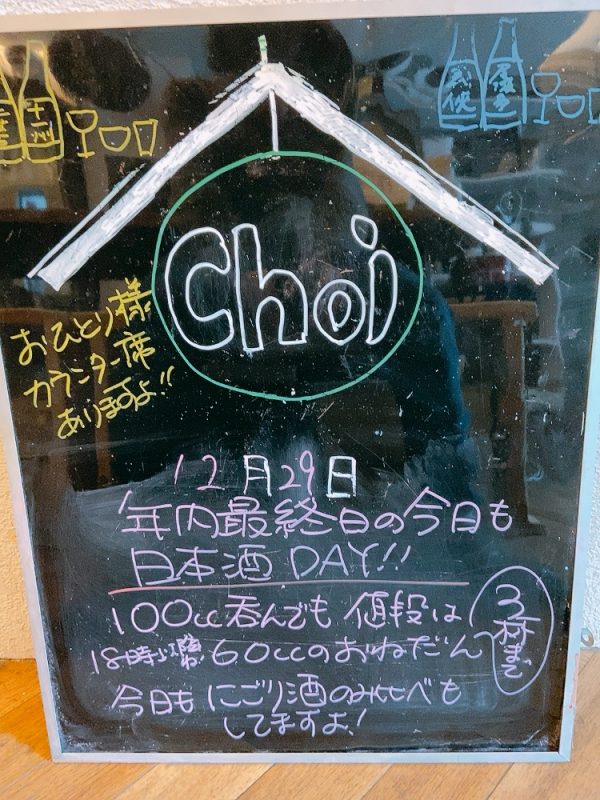 十
州
Choi
おひとり様
カウンター席
ありますよ!!
12月29日
年内最終日の今日も
日本酒 DAY!!
100cc呑んでも 値段は
18時 60ccのおねだん
3杯まで
今日も にごり酒のみ比べも
してますよ!